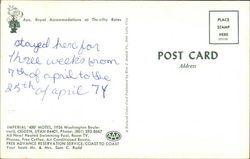 Aus, Royal Accommodations at Thrifty Rates
stayed here for
three weeks from
7th of april to the
28th of april 74
IMPERIAL "400" MOTEL, 1956 Washington Boule-
vard, OGDEN, UTAH 84401. Phone: (801) 393-8667
All New! Heated Swimming Pool, Room TV,
Phones, Free Coffee, Air Conditioned Rooms.
FREE ADVANCE RESERVATION SERVICE/COAST TO COAST
Your hosts: Mr. & Mrs. Sam C. Rudd
AAA
POST CARD
Address
PLACE
STAMP
HERE